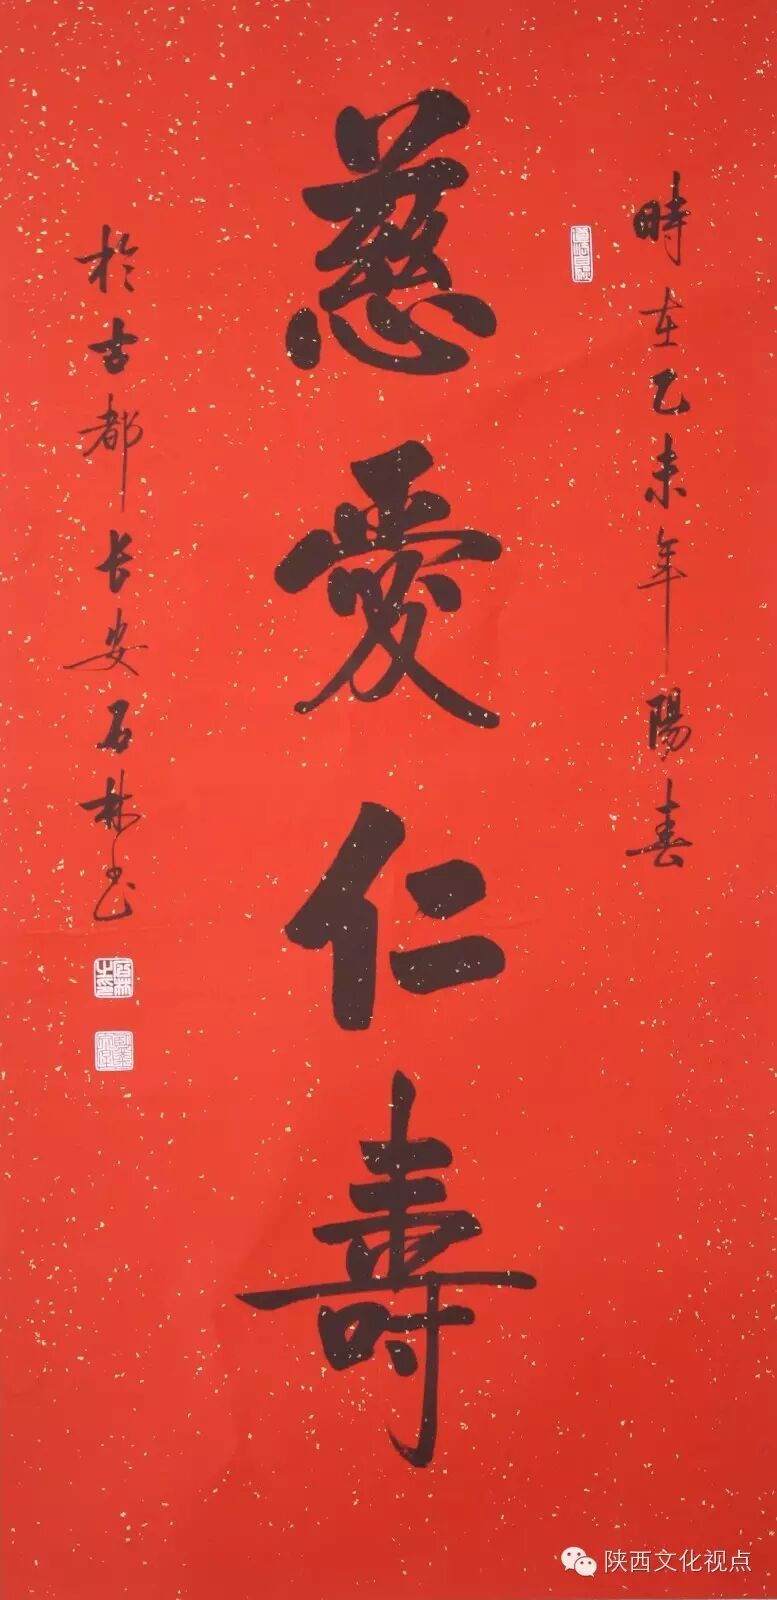 時在乙未年陽春
慈愛仁壽
於古都长安石林书
陕西文化视点